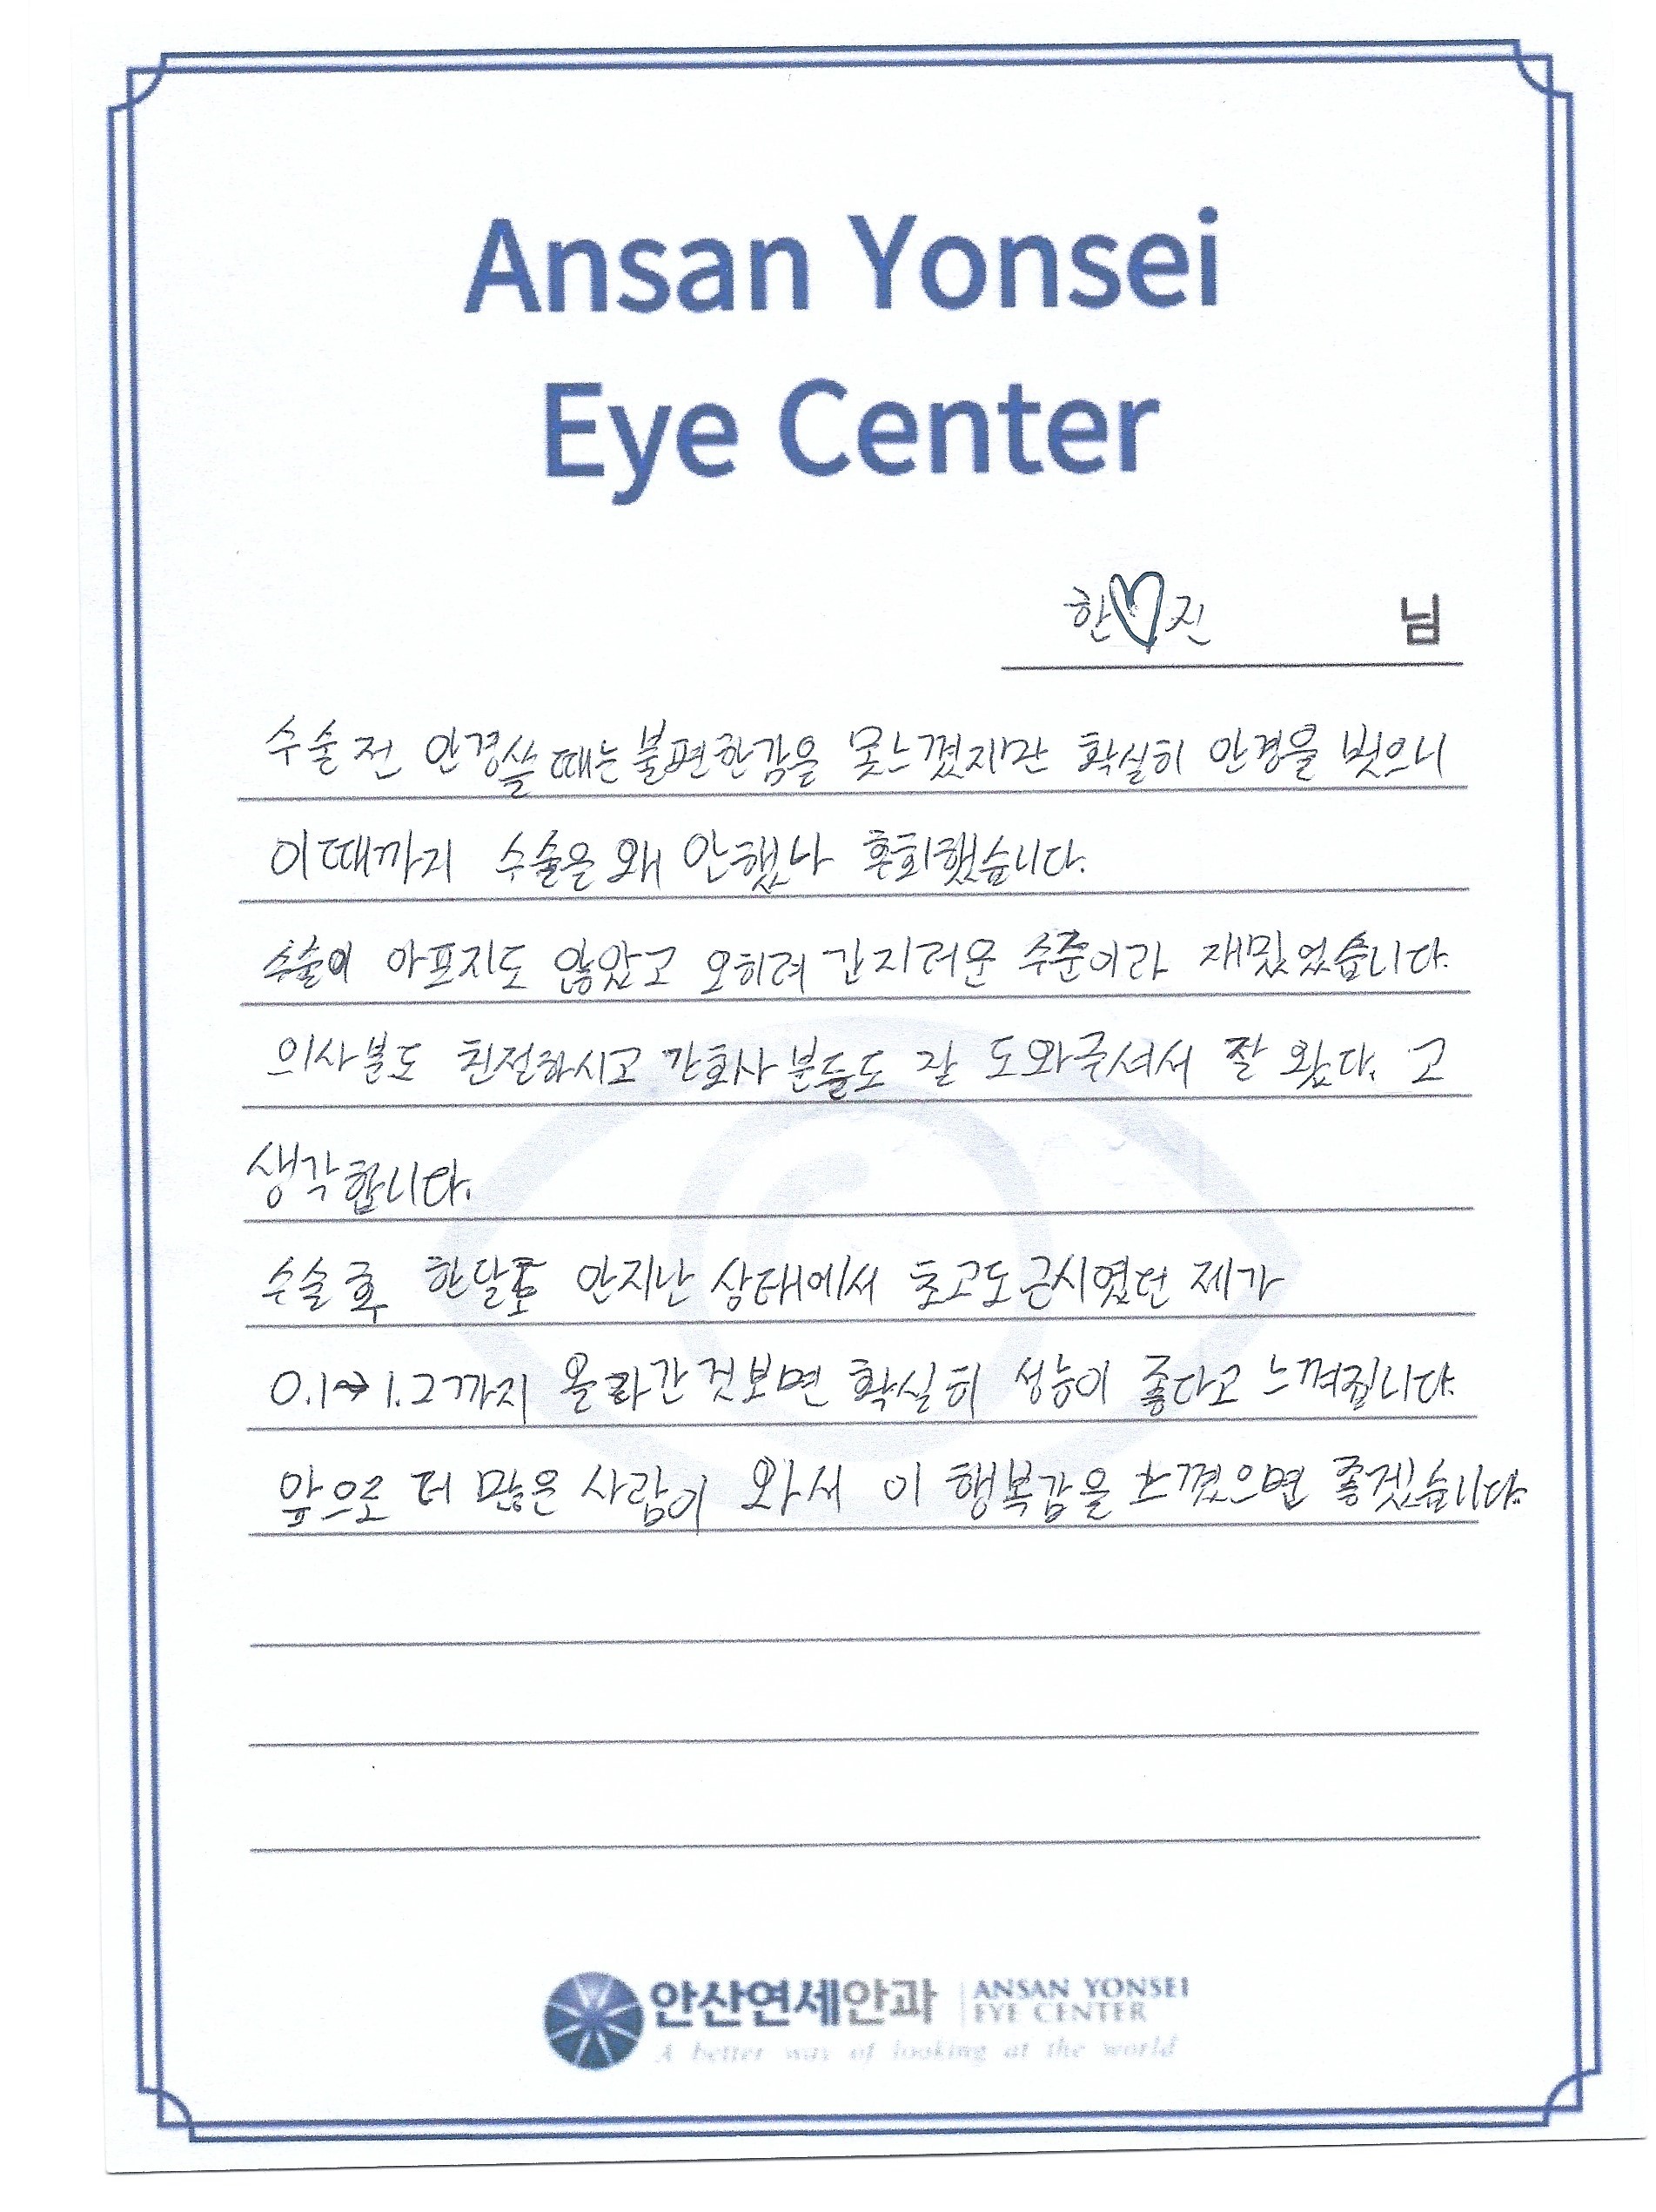 Ansan Yonsei
Eye Center
한♡진 님
수술전 안경쓸때는 불편한감을 못느꼈지만 확실히 안경을 벗으니
이때까지 수술은 왜 안했나 후회했습니다.
수술이 아프지도 않았고 오히려 간지러운 수준이라 재밌었습니다.
의사분도 친절하시고 간호사분들도 잘 도와주셔서 잘 왔다. 고
생각합니다.
수술후 한달도 안지난 상태에서 초고도근시였던 제가
0.1→1.2까지 올라간것보면 확실히 성능이 좋다고 느껴집니다.
앞으로 더 많은 사람이 와서 이 행복감을 느꼈으면 좋겠습니다.
안산연세안과 ANSAN YONSEI
EYE CENTER
A better way of looking at the world